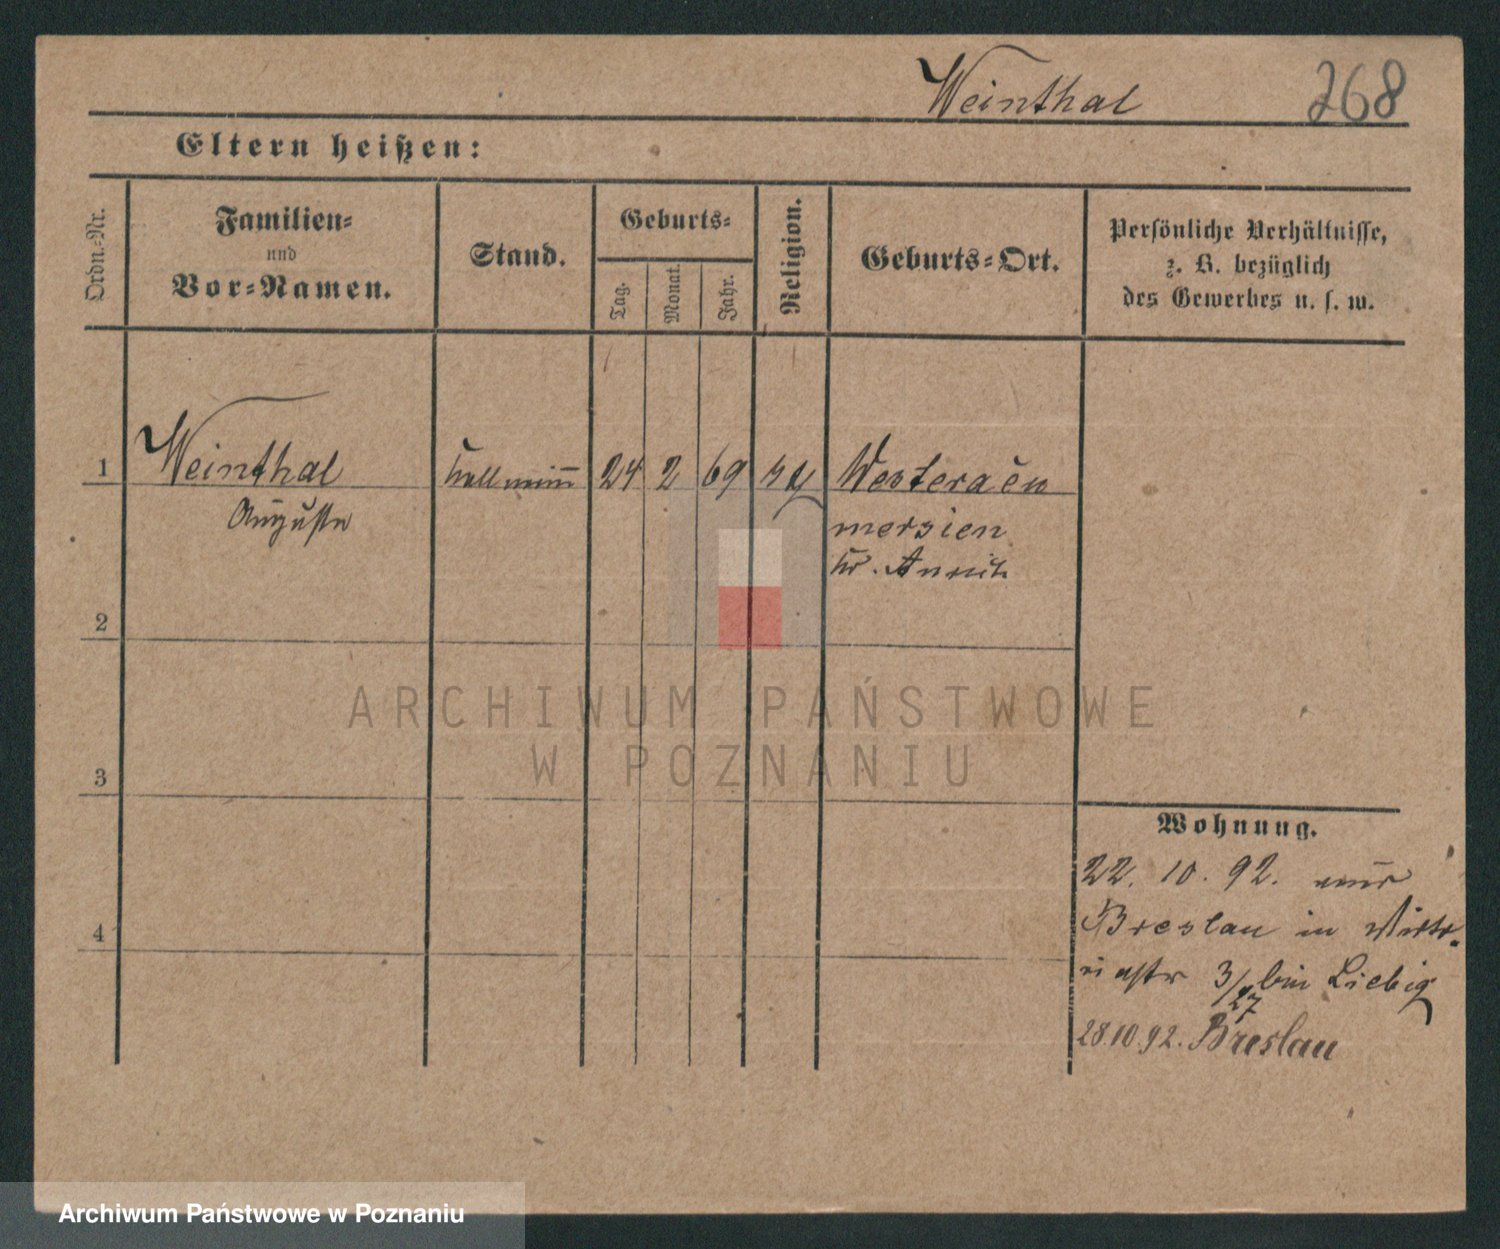 Weinthal 268
Eltern heißen:
Ordn.=Nr.
Familien=
und
Vor=Namen.
Stand.
Geburts=
Tag.
Monat.
Jahr.
Religion.
Geburts=Ort.
Persönliche Verhältnisse,
z. B. bezüglich
des Gewerbes u. s. w.
1 Weinthal Kellnerin 24 2 69
Auguste
2
3
4
Wohnung.
22. 10. 92.
Breslau in
3/27 bei Liebig
28.10.92. Breslau
ARCHIWUM PAŃSTWOWE
W POZNANIU
Archiwum Państwowe w Poznaniu